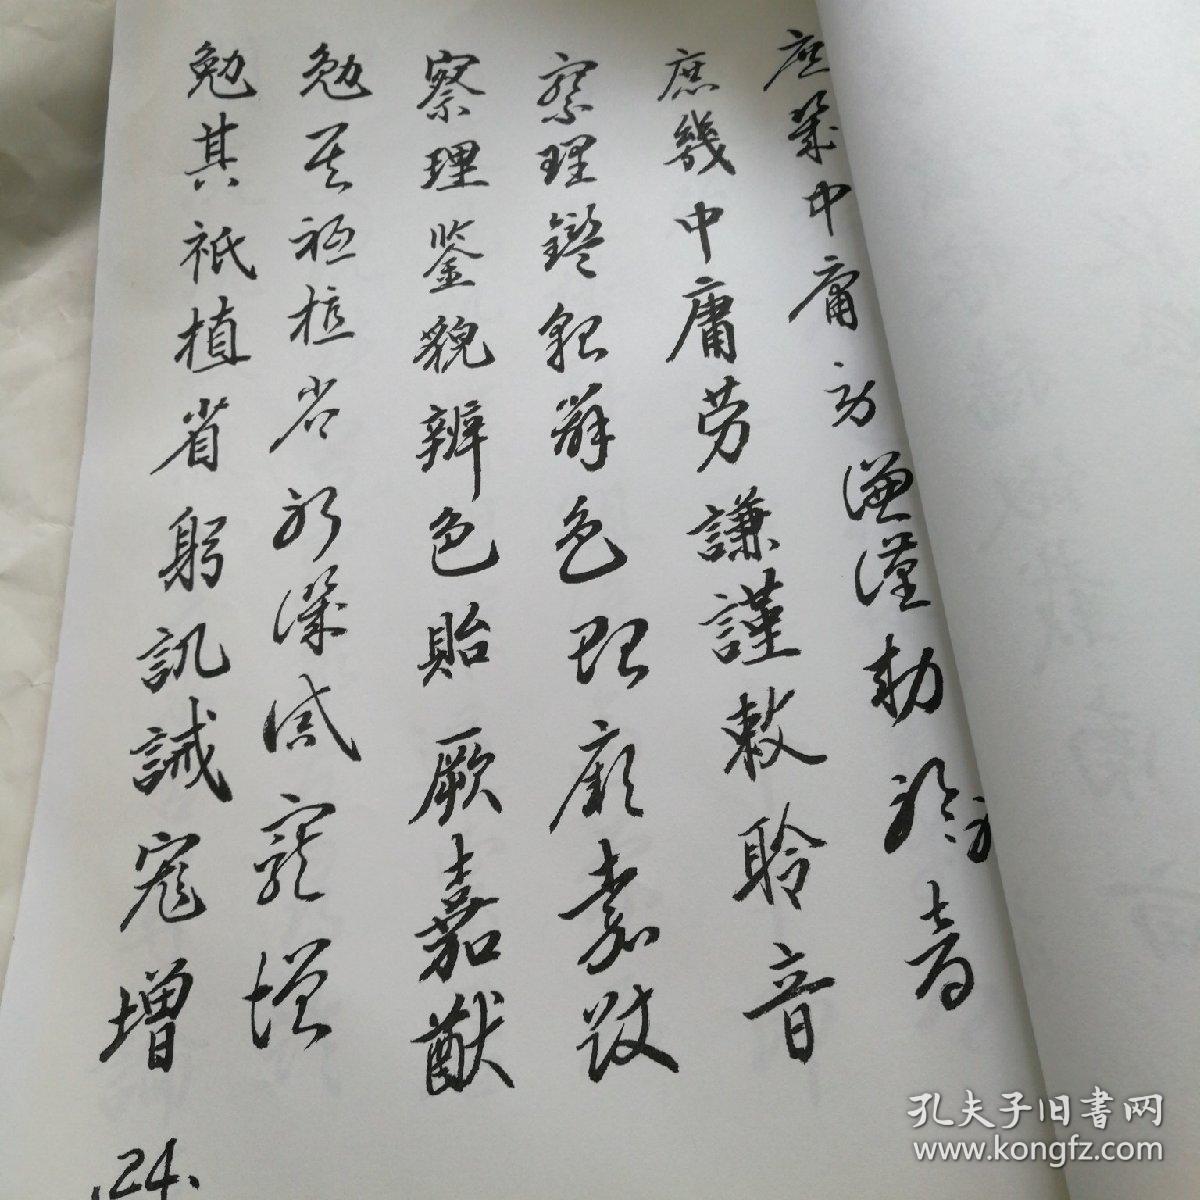 庶幾中庸勞謙謹勅聆音
庶幾中庸劳謙謹敕聆音
察理鑑貌辨色貽厥嘉猷
察理鉴貌辨色貽厥嘉猷
勉其祗植省躬譏誡寵增
勉其祗植省躬譏誡寵增
.24.
孔夫子旧书网
www.kongfz.com